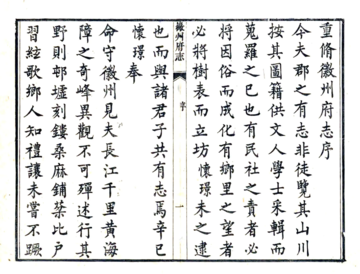 重脩徽州府志序
今夫郡之有志非徒覽其山川
按其圖籍供文人學士采輯而
蒐羅之巳也有民社之責者必
將因俗而成化有鄉里之望者
必將樹表而立坊懷璟未之逮
徽州府志
序
一
也而與諸君子共有志焉辛巳
懷璟奉
命守徽州見夫長江千里黄海
障之奇峰異觀不可殫述行其
野則邨墟刻鏤桑麻鋪棻比戶
習絃歌鄉人知禮讓未嘗不蹶